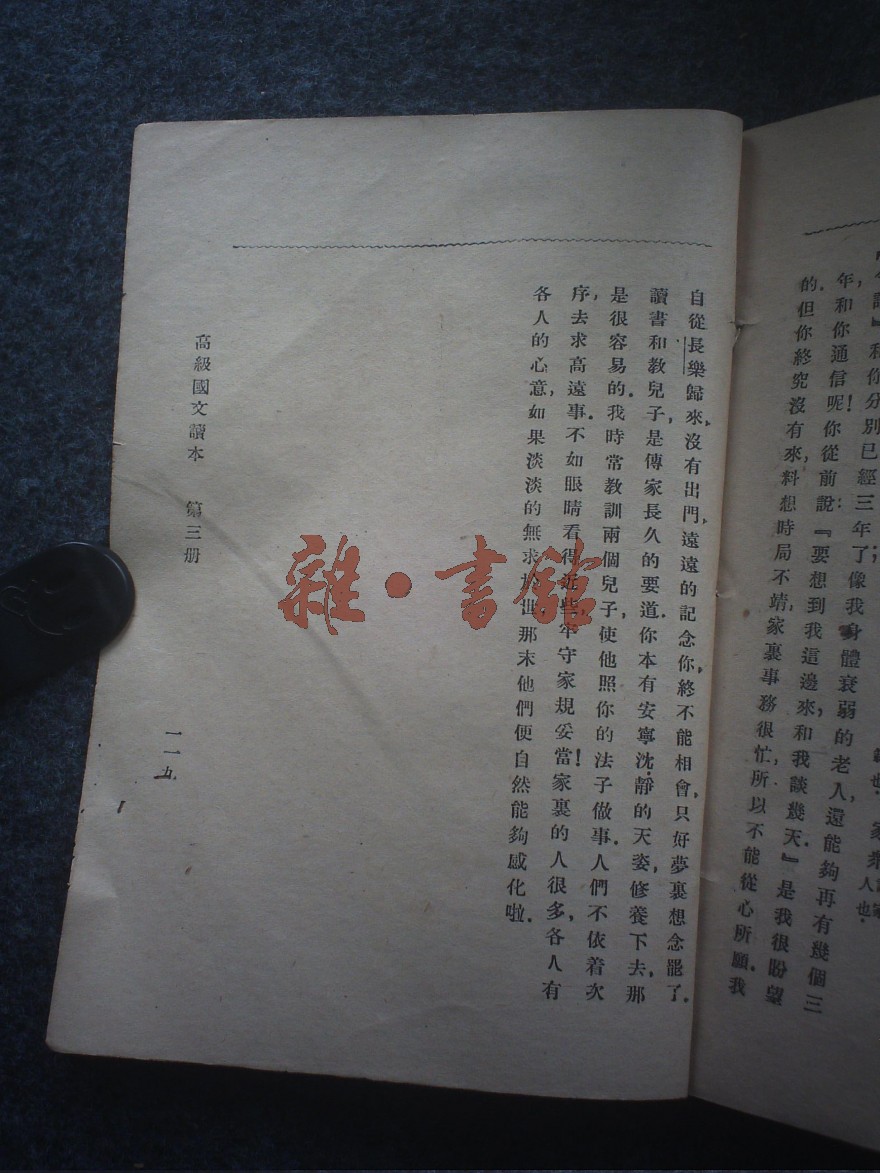 年，和你通信呢！你從前說：『要想到我這邊來，和我談幾天．』是我很盼望
的．但你終究沒有來，料想時局不靖，家裏事務很忙，所以不能從心所願．我
自從長樂歸來，沒有出門，遠遠的記念你，終不能相會，只好夢裏想念罷了．
讀書和教兒子，是傳家長久的要道．你本有安寧沈靜的天姿，修養下去，那
是很容易的．我時常教訓兩個兒子，使他照你的法子做事．人們不依着次
序，去求高遠事．不如眼睛看得近些，牢守家規妥當！家裏的人很多，各人有
各人的心意，如果淡淡的無求於世，那末他們便自然能夠感化啦．
高級國文讀本 第三册
一一九
雜·書館